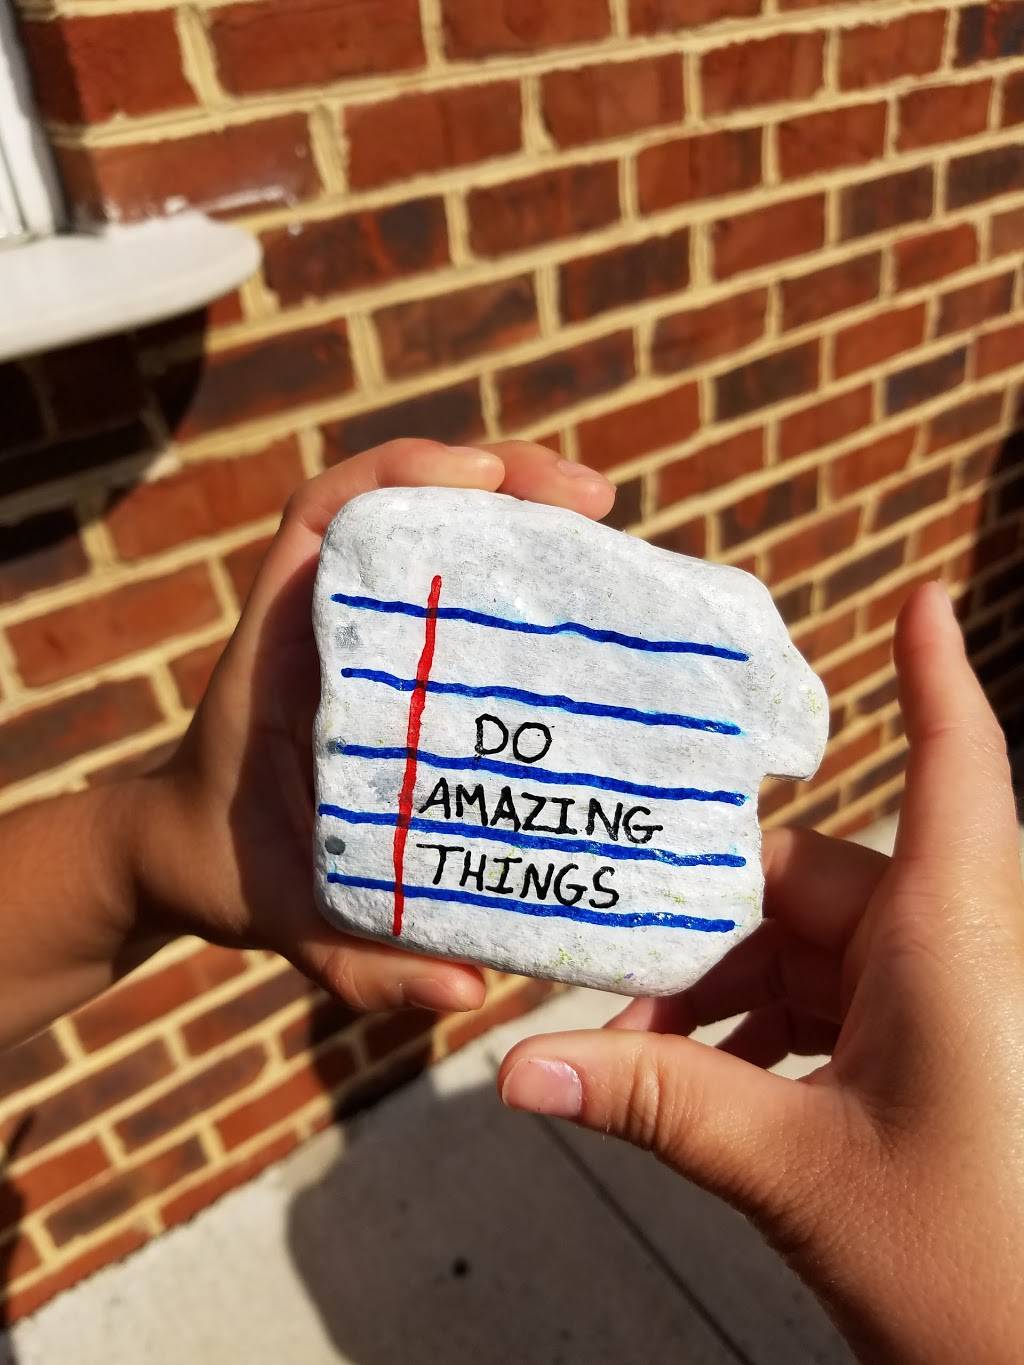 DO
AMAZING
THINGS